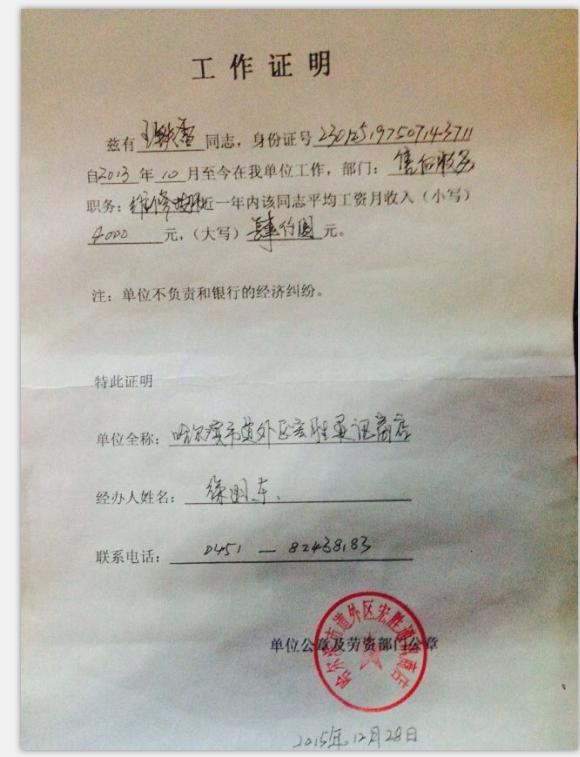 工作证明
兹有 王 雷 同志，身份证号 230125197507143711
自2013 年 10 月至今在我单位工作，部门：售后服务
职务：维修 近一年内该同志平均工资月收入（小写）
4000 元，（大写）肆仟圆 元。
注：单位不负责和银行的经济纠纷。
特此证明
单位全称：哈尔滨市道外区宏胜通讯商店
经办人姓名：徐明东
联系电话：0451 — 82438183
哈尔滨市道外区宏胜通讯商店
单位公章及劳资部门公章
2015年12月28日